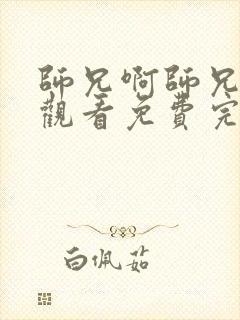 師兄啊師兄
觀看免費完
白佩茹